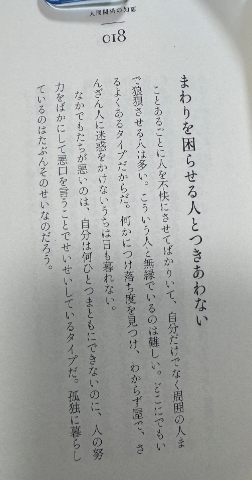 人間関係の知恵
018
まわりを困らせる人とつきあわない
ことあるごとに人を不快にさせてばかりいて、自分だけでなく周囲の人ま
で狼狽させる人は多い。こういう人と無縁でいるのは難しい。どこにでもい
るよくあるタイプだからだ。何かにつけ落ち度を見つけ、わからず屋で、さ
んざん人に迷惑をかけないうちは日も暮れない。
なかでもたちが悪いのは、自分は何ひとつまともにできないのに、人の努
力をばかにして悪口を言うことでせいせいしているタイプだ。孤独に暮らし
ているのはたぶんそのせいなのだろう。